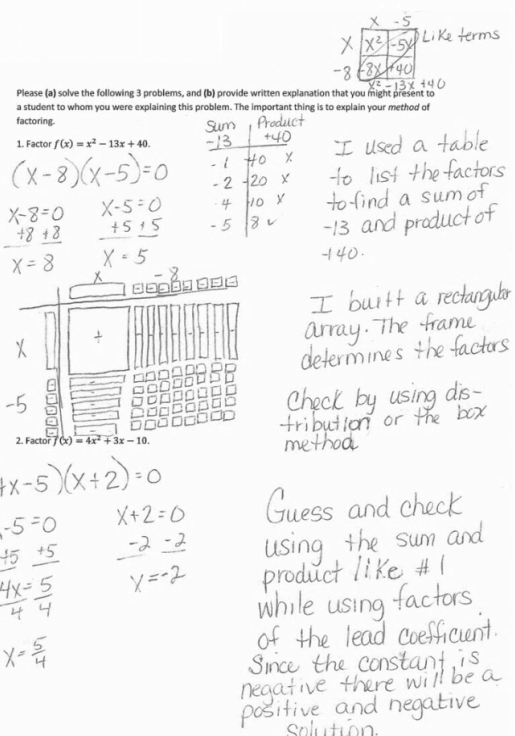 x -5
x x² -5x Like terms
-8 -8x +40
x² -13x +40
Please (a) solve the following 3 problems, and (b) provide written explanation that you might present to
a student to whom you were explaining this problem. The important thing is to explain your method of
factoring.
1. Factor f(x) = x² – 13x + 40.
(x-8)(x-5)=0
x-8=0 x-5=0
+8 +8 +5 +5
x=8 x=5
Sum Product
-13 +40
-1 40 x
-2 -20 x
4 10 x
-5 8 ✓
I used a table
to list the factors
to find a sum of
-13 and product of
-140.
x -8
x +
-5
I built a rectangular
array. The frame
determines the factors
Check by using dis-
tribution or the box
method
2. Factor f(x) = 4x² + 3x – 10.
4x-5)(x+2)=0
-5=0 x+2=0
+5 +5 -2 -2
4x=5 x=-2
4 4
x=5/4
Guess and check
using the sum and
product like #1
while using factors
of the lead coefficient.
Since the constant is
negative there will be a
positive and negative
solution.